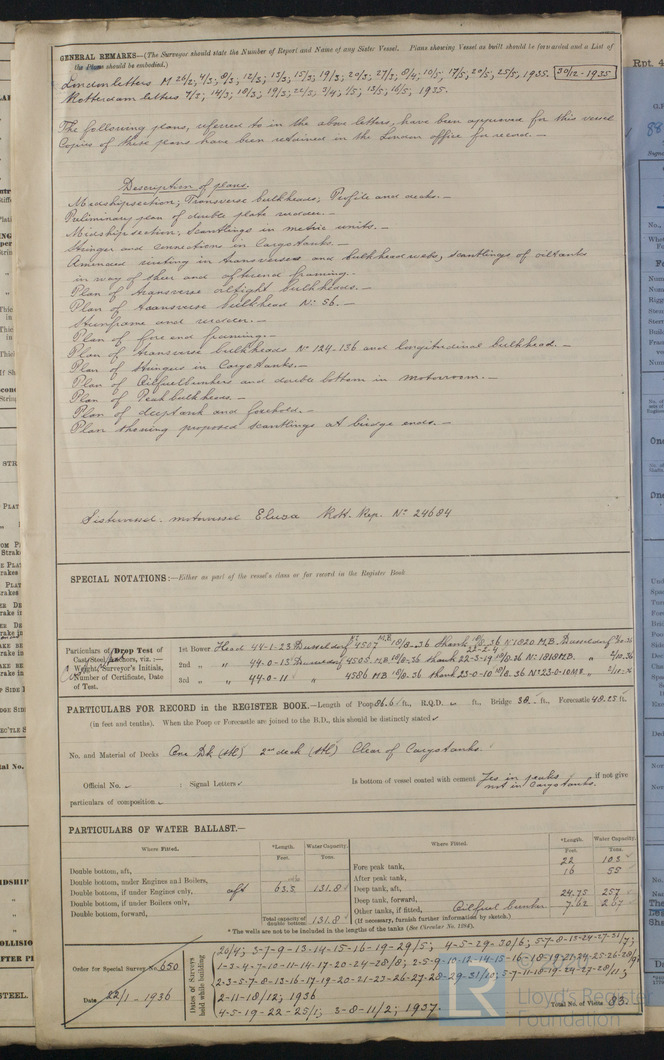 GENERAL REMARKS—(The Surveyor should state the Number of Report and Name of any Sister Vessel. Plans showing Vessel as built should be forwarded and a List of
the Plans should be embodied.)
London letters M 26/2, 4/3, 8/3, 12/3, 13/3, 15/3, 19/3, 20/3, 27/3, 8/4, 10/5, 17/5, 20/5, 25/5, 1935. 30/12-1935
Rotterdam letters 7/2, 14/3, 18/3, 19/3, 22/3, 3/4, 1/5, 13/5, 16/5, 1935.
The following plans, referred to in the above letters, have been approved for this vessel
Copies of these plans have been retained in the London office for record.—
Description of plans.
Midshipsection; Transverse bulkheads; Profile and decks.—
Preliminary plan of double plate rudder.—
Midshipsection; Scantlings in metric units.—
Stringer and connections in Cargotanks.—
Amended riveting in transverses and bulkhead webs; scantlings of oiltanks
in way of sheer and aftend framing.—
Plan of transverse oiltight bulkheads.—
Plan of transverse bulkhead No 56.—
Sternframe and rudder.—
Plan of fore end framing.—
Plan of transverse bulkheads No 124-136 and longitudinal bulkhead.—
Plan of Stringers in Cargotanks.—
Plan of Oilfuelbunkers and double bottom in motorroom.—
Plan of Peakbulkheads.—
Plan of deeptank and forehold.—
Plan showing proposed scantlings at bridge ends.—
Sistervessel motorvessel Elusa Rott. Rep. No 24684
SPECIAL NOTATIONS:—Either as part of the vessel's class or for record in the Register Book
Particulars of Drop Test of
Cast Steel Anchors, viz.:—
Weight, Surveyor's Initials,
Number of Certificate, Date
of Test.
1st Bower Head 44-1-23 Dusseldorf 4507 M.B. 18/8-36 Shank 22-2-4 No 1820 M.B. Dusseldorf
2nd „ „ 44-0-15 Dusseldorf 4505 M.B. 10/8-36 Shank 22-3-19 10/8.36 No 1818 M.B. „ 2/10.36
3rd „ „ 44-0-11 „ 4586 M.B. Shank 23-0-10
PARTICULARS FOR RECORD in the REGISTER BOOK.—Length of Poop 86.6 ft., R.Q.D. ft., Bridge 38. ft., Forecastle 48.25 ft.
(in feet and tenths). When the Poop or Forecastle are joined to the B.D., this should be distinctly stated
No. and Material of Decks One Dk (stl) 2nd deck (stl) Clear of Cargotanks.
Official No. ; Signal Letters Is bottom of vessel coated with cement Yes in peaks if not give
not in Cargotanks.
particulars of composition
PARTICULARS OF WATER BALLAST.—
Where Fitted. *Length. Water Capacity. Where Fitted. *Length. Water Capacity.
Feet. Tons. Feet. Tons.
Double bottom, aft, Fore peak tank, 22 103
Double bottom, under Engines and Boilers, After peak tank, 16 55
Double bottom, if under Engines only, aft 63.3 131.8 Deep tank, aft, 24.75 257
Double bottom, if under Boilers only, Deep tank, forward,
Double bottom, forward, Other tanks, if fitted, Oilfuel bunker 7.62 267
Total capacity of double bottoms 131.8 (If necessary, furnish further information by sketch.)
* The wells are not to be included in the lengths of the tanks (See Circular No. 1284).
Order for Special Survey No. 650
Date 22/1-1936
Dates of Surveys held while building
20/4; 3-7-9-13-14-15-16-19-29/5; 4-5-29-30/6; 5-7-8-13-24-27-31/7;
1-3-4-7-10-11-14-17-20-24-28/8; 2-5-9-10-12-14-15-16-18-19-21-24-25-26-28/9
2-3-5-7-8-13-16-17-19-20-21-23-26-27-28-29-31/10; 5-7-11-18-19-24-27-28/11;
2-11-18/12; 1936
4-5-19-22-25/1; 3-8-11/2; 1937.
Total No. of Visits 83.
Lloyd's Register
Foundation
LR
Rpt. 4